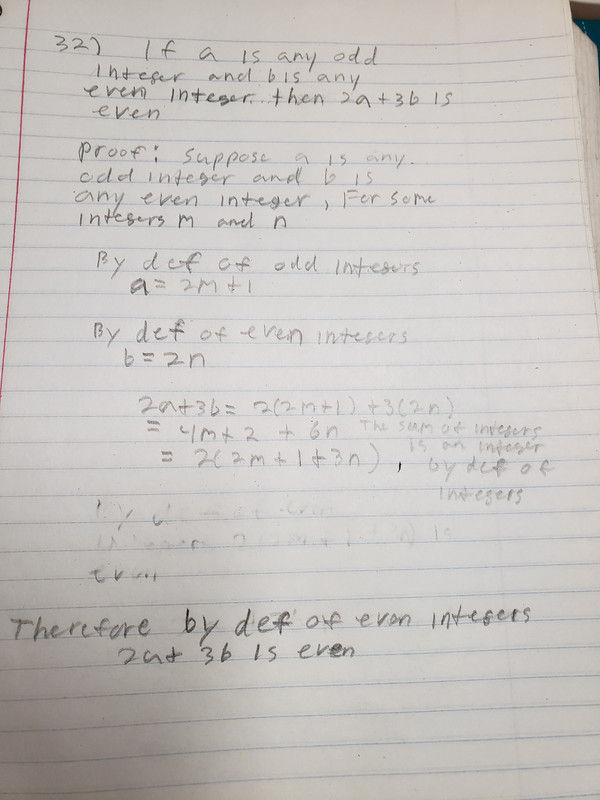 32) If a is any odd
integer and b is any
even integer.. then 2a+3b is
even
Proof: Suppose a is any.
odd integer and b is
any even integer, For some
integers m and n
By def of odd integers
a = 2m+1
By def of even integers
b = 2n
2a+3b = 2(2m+1) + 3(2n)
= 4m+2 + 6n The sum of integers
is an integer
= 2(2m+1+3n), by def of
integers
Therefore by def of even integers
2a+ 3b is even